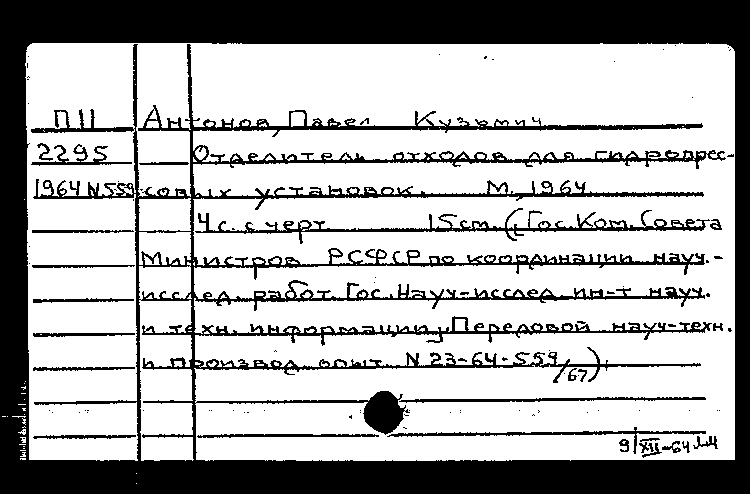 П11 Антонов, Павел Кузьмич
2295 Отделитель отходов для гидропрес-
1964 N.559 совых установок. М., 1964
4 с. с черт 15 см. (Гос. Ком. Совета
Министров РСФСР по координации науч.-
исслед. работ. Гос. Науч-исслед ин-т науч.
и техн. информации, Передовой науч-техн.
и производ опыт N 23-64-559/67).
9/XII-64